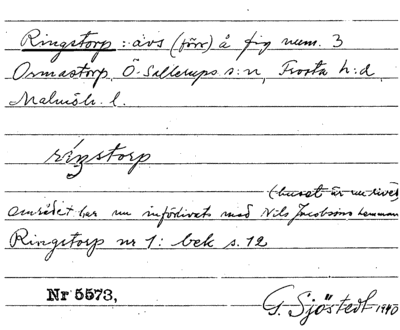 Ringstorp: avs (förr) å fig num. 3
Ormastorp, Ö. Sallerups s:n, Frosta h:d,
Malmöh. l.
riŋstorp
(huset är nu rivet)
området har nu införlivats med Nils Jacobsons hemman
Ringstorp nr 1: bek s. 12
Nr 5573,
G. Sjöstedt 1940